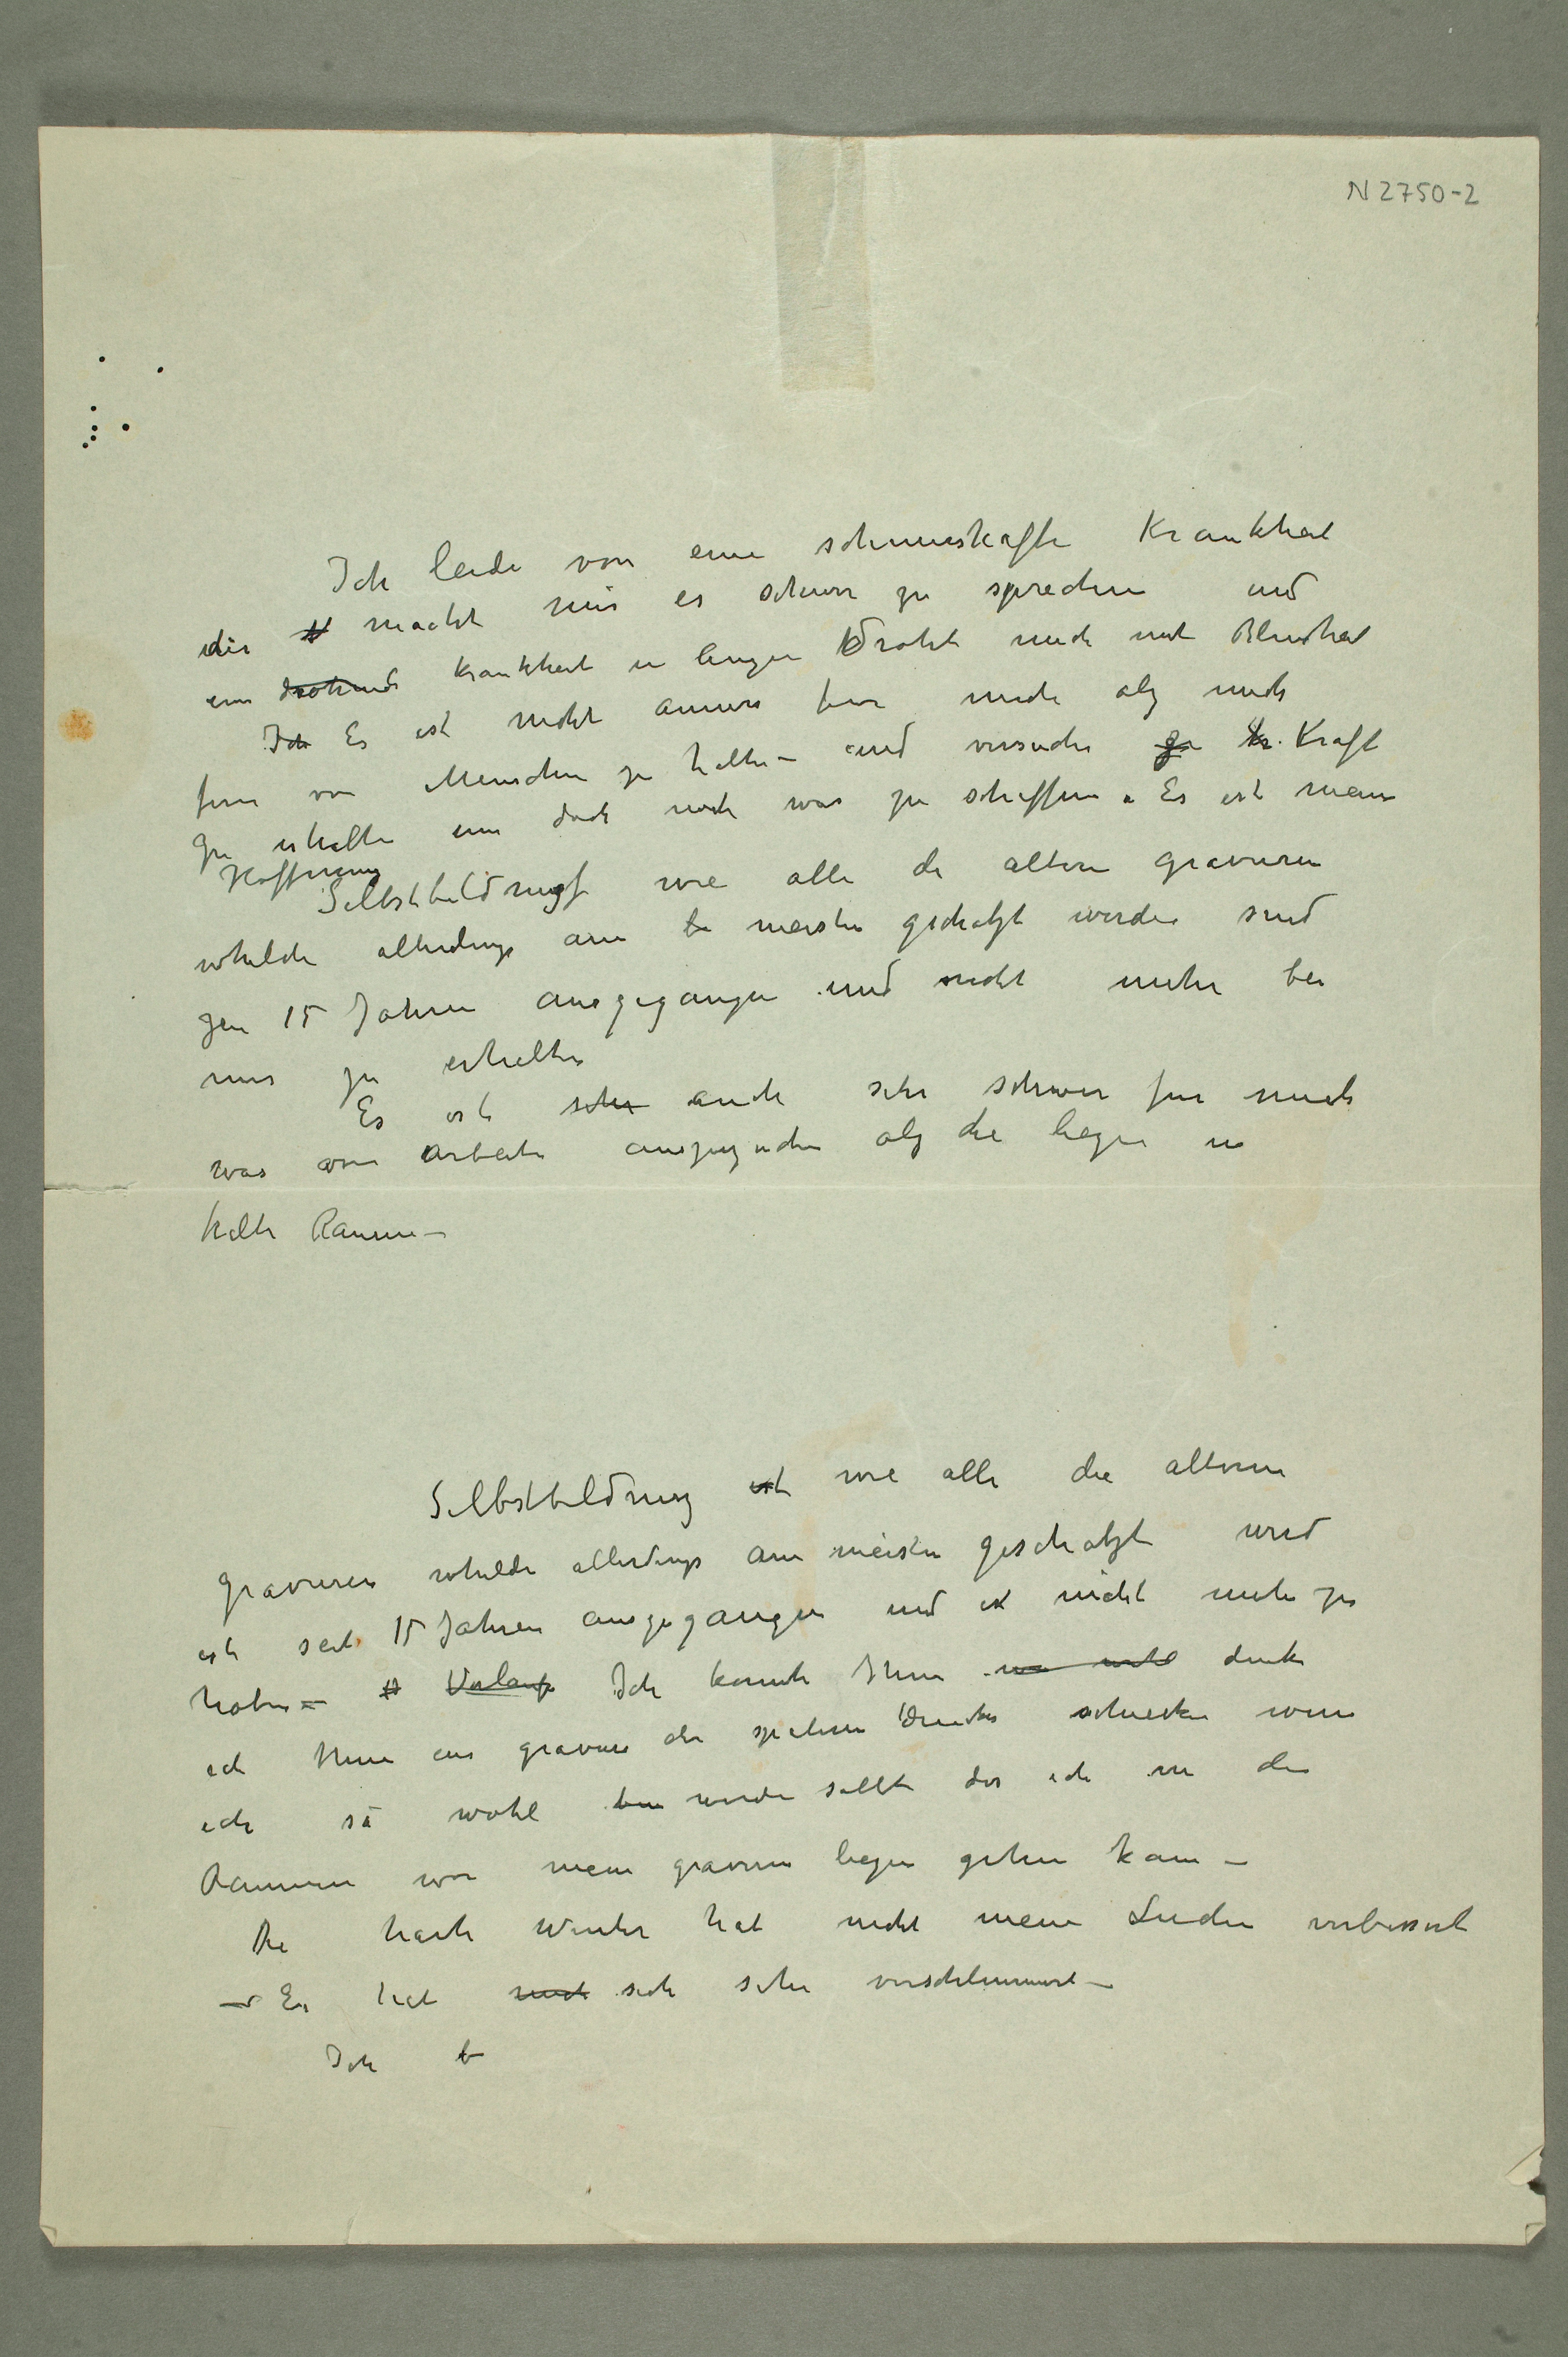 N 2750-2
Ich leide von eine schmershafte Krankheit
die macht mir es schwer zu sprechen und
eine drohende Krankheit in Augen droht mich mit Blindheit
Ich Es ist nicht anners für mich alz mich
fern von Menschen zu halten – und versuche zu kr. Kraft
zu erhalten um doch noch was zu schaffen. Es ist meine
Hoffnung
Selbstbildnis wie alle die altern gravuren
whelche allerdings am be meisten geschatzt werden sind
zen 15 Jahren ausgegangen und nicht mehr bei
mir zu erhalten
Es ist sehr auch sehr schwer für mich
was von Arbeiten auszuzuchen alz die liegen in
kalte Raume –
Selbstbildniz ist wie alle die alteren
gravuren whelche allerdings am meisten geschatzt wird
ist seit 15 Jahren ausgegangen und ist nicht mehr zu
haben – Verlauf Ich konnte Ihnen denke
ich Ihnen eine gravure der spateren Drucke schicken wenn
ich so wohl bin werden sollte das ich in die
Raumen wo meine gravuren liegen gehen kann –
Die harte Winter hat nicht meine Leiden verbessert
– Er hat mich sich sehr verschlimmert –
Ich b